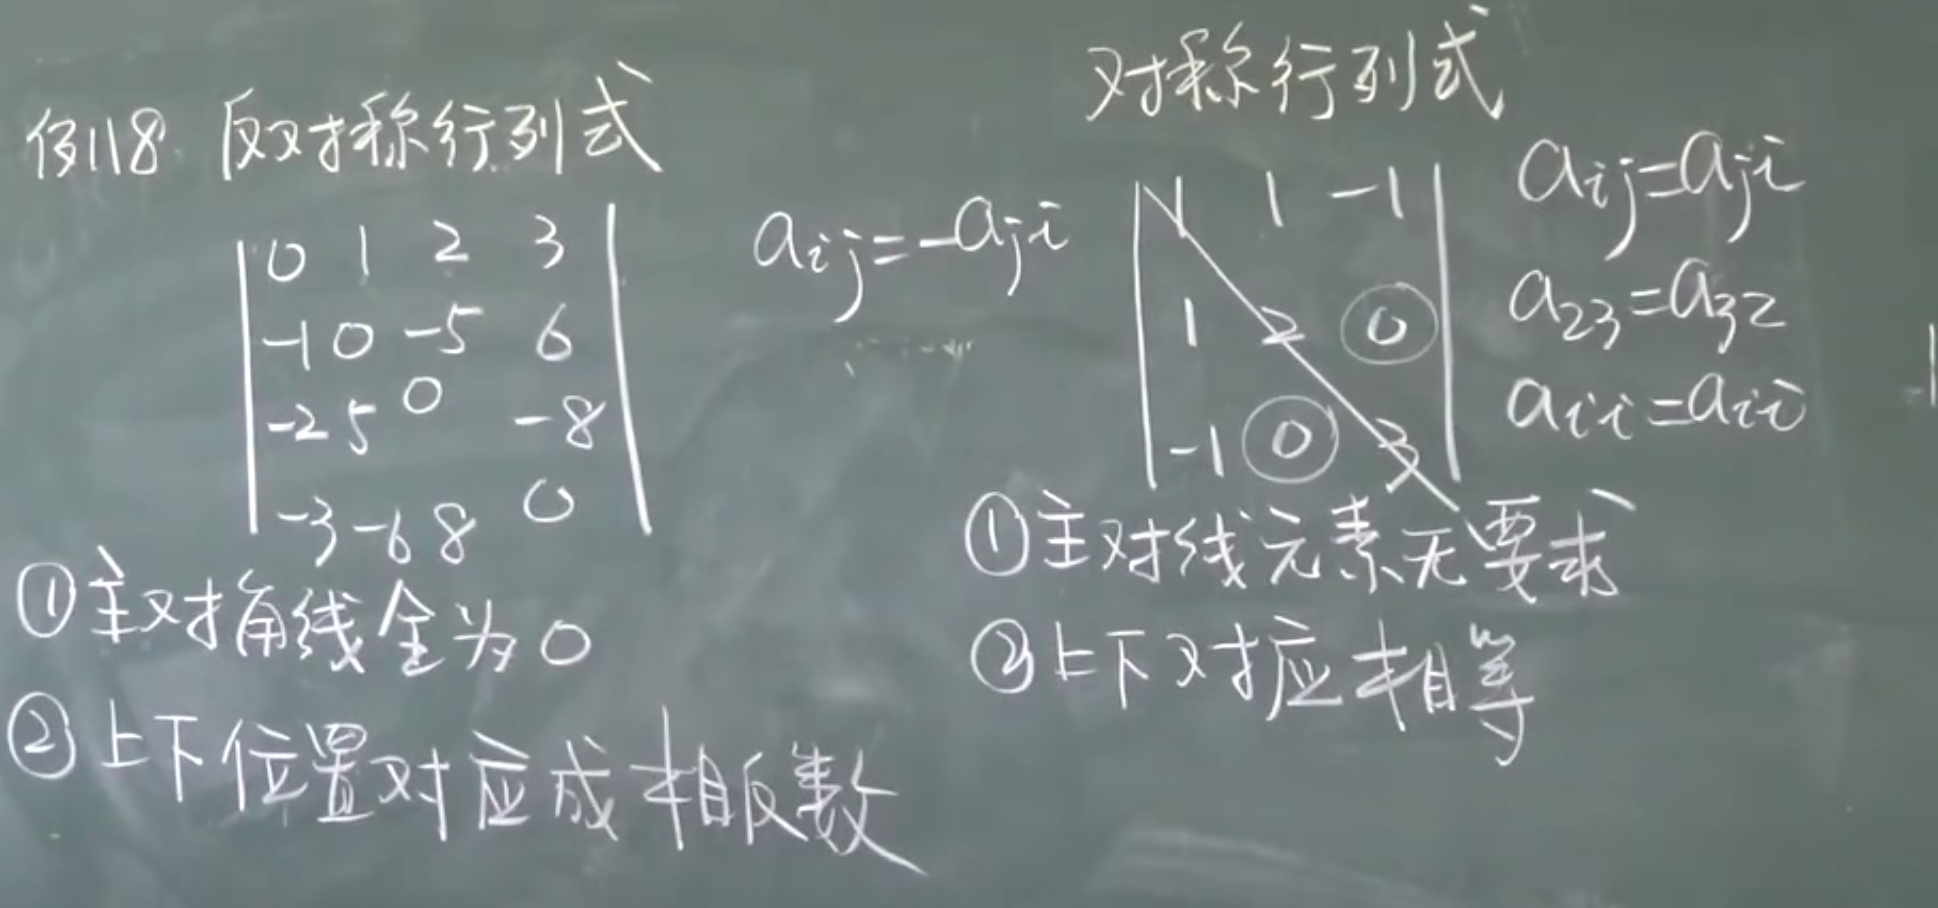 例18 反对称行列式
0 1 2 3
-1 0 -5 6
-2 5 0 -8
-3 -6 8 0
aij=-aji
①主对角线全为0
②上下位置对应成相反数
对称行列式
1 1 -1
1 2 0
-1 0 3
aij=aji
a23=a32
aii=aii
①主对线元素无要求
②上下对应相等